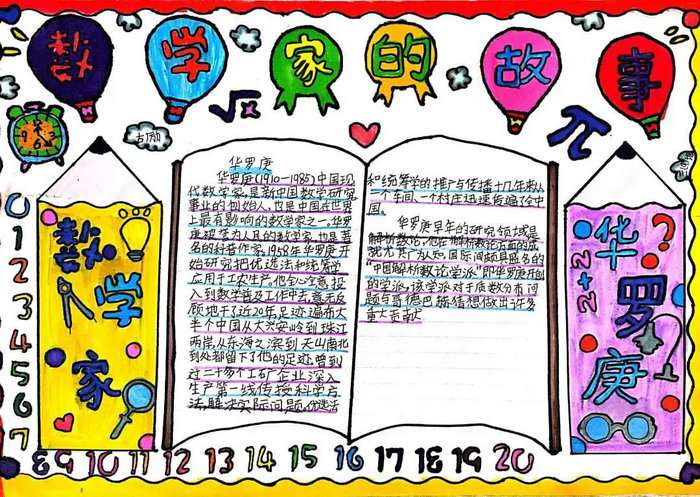 数学家的故事
√x
π
12
3
6
9
0
1
2
3
4
5
6
7
8 9 10 11 12 13 14 15 16 17 18 19 20
数学家
华罗庚
2+2
?
华罗庚
华罗庚(1910—1985)中国现
代数学家,是新中国数学研究
事业的创始人,也是中国在世界
上最有影响的数学家之一,华罗
庚被誉为人民的数学家,也是著
名的科普作家,1958年华罗庚开
始研究把优选法和统筹学
应用于工农生产,他全心全意投
入到数学普及工作中去,义无反
顾地干了近20年,足迹遍布大
半个中国从大兴安岭到珠江
两岸,从东海之滨到天山南北
到处都留下了他的足迹,曾到
过二十多个工矿企业深入
生产第一线传授科学方
法,解决实际问题,优选法
和统筹学的推广与传播十几年来从
一个车间、一个村庄迅速传编了全中
国.
华罗庚早年的研究领域是
解析数论,他在解析数论方面的成
就尤其广为认知,国际间颇具盛名的
“中国解析数论学派”即华罗庚开创
的学派,该学派对于质数分布问
题与哥德巴赫猜想做出许多
重大贡献